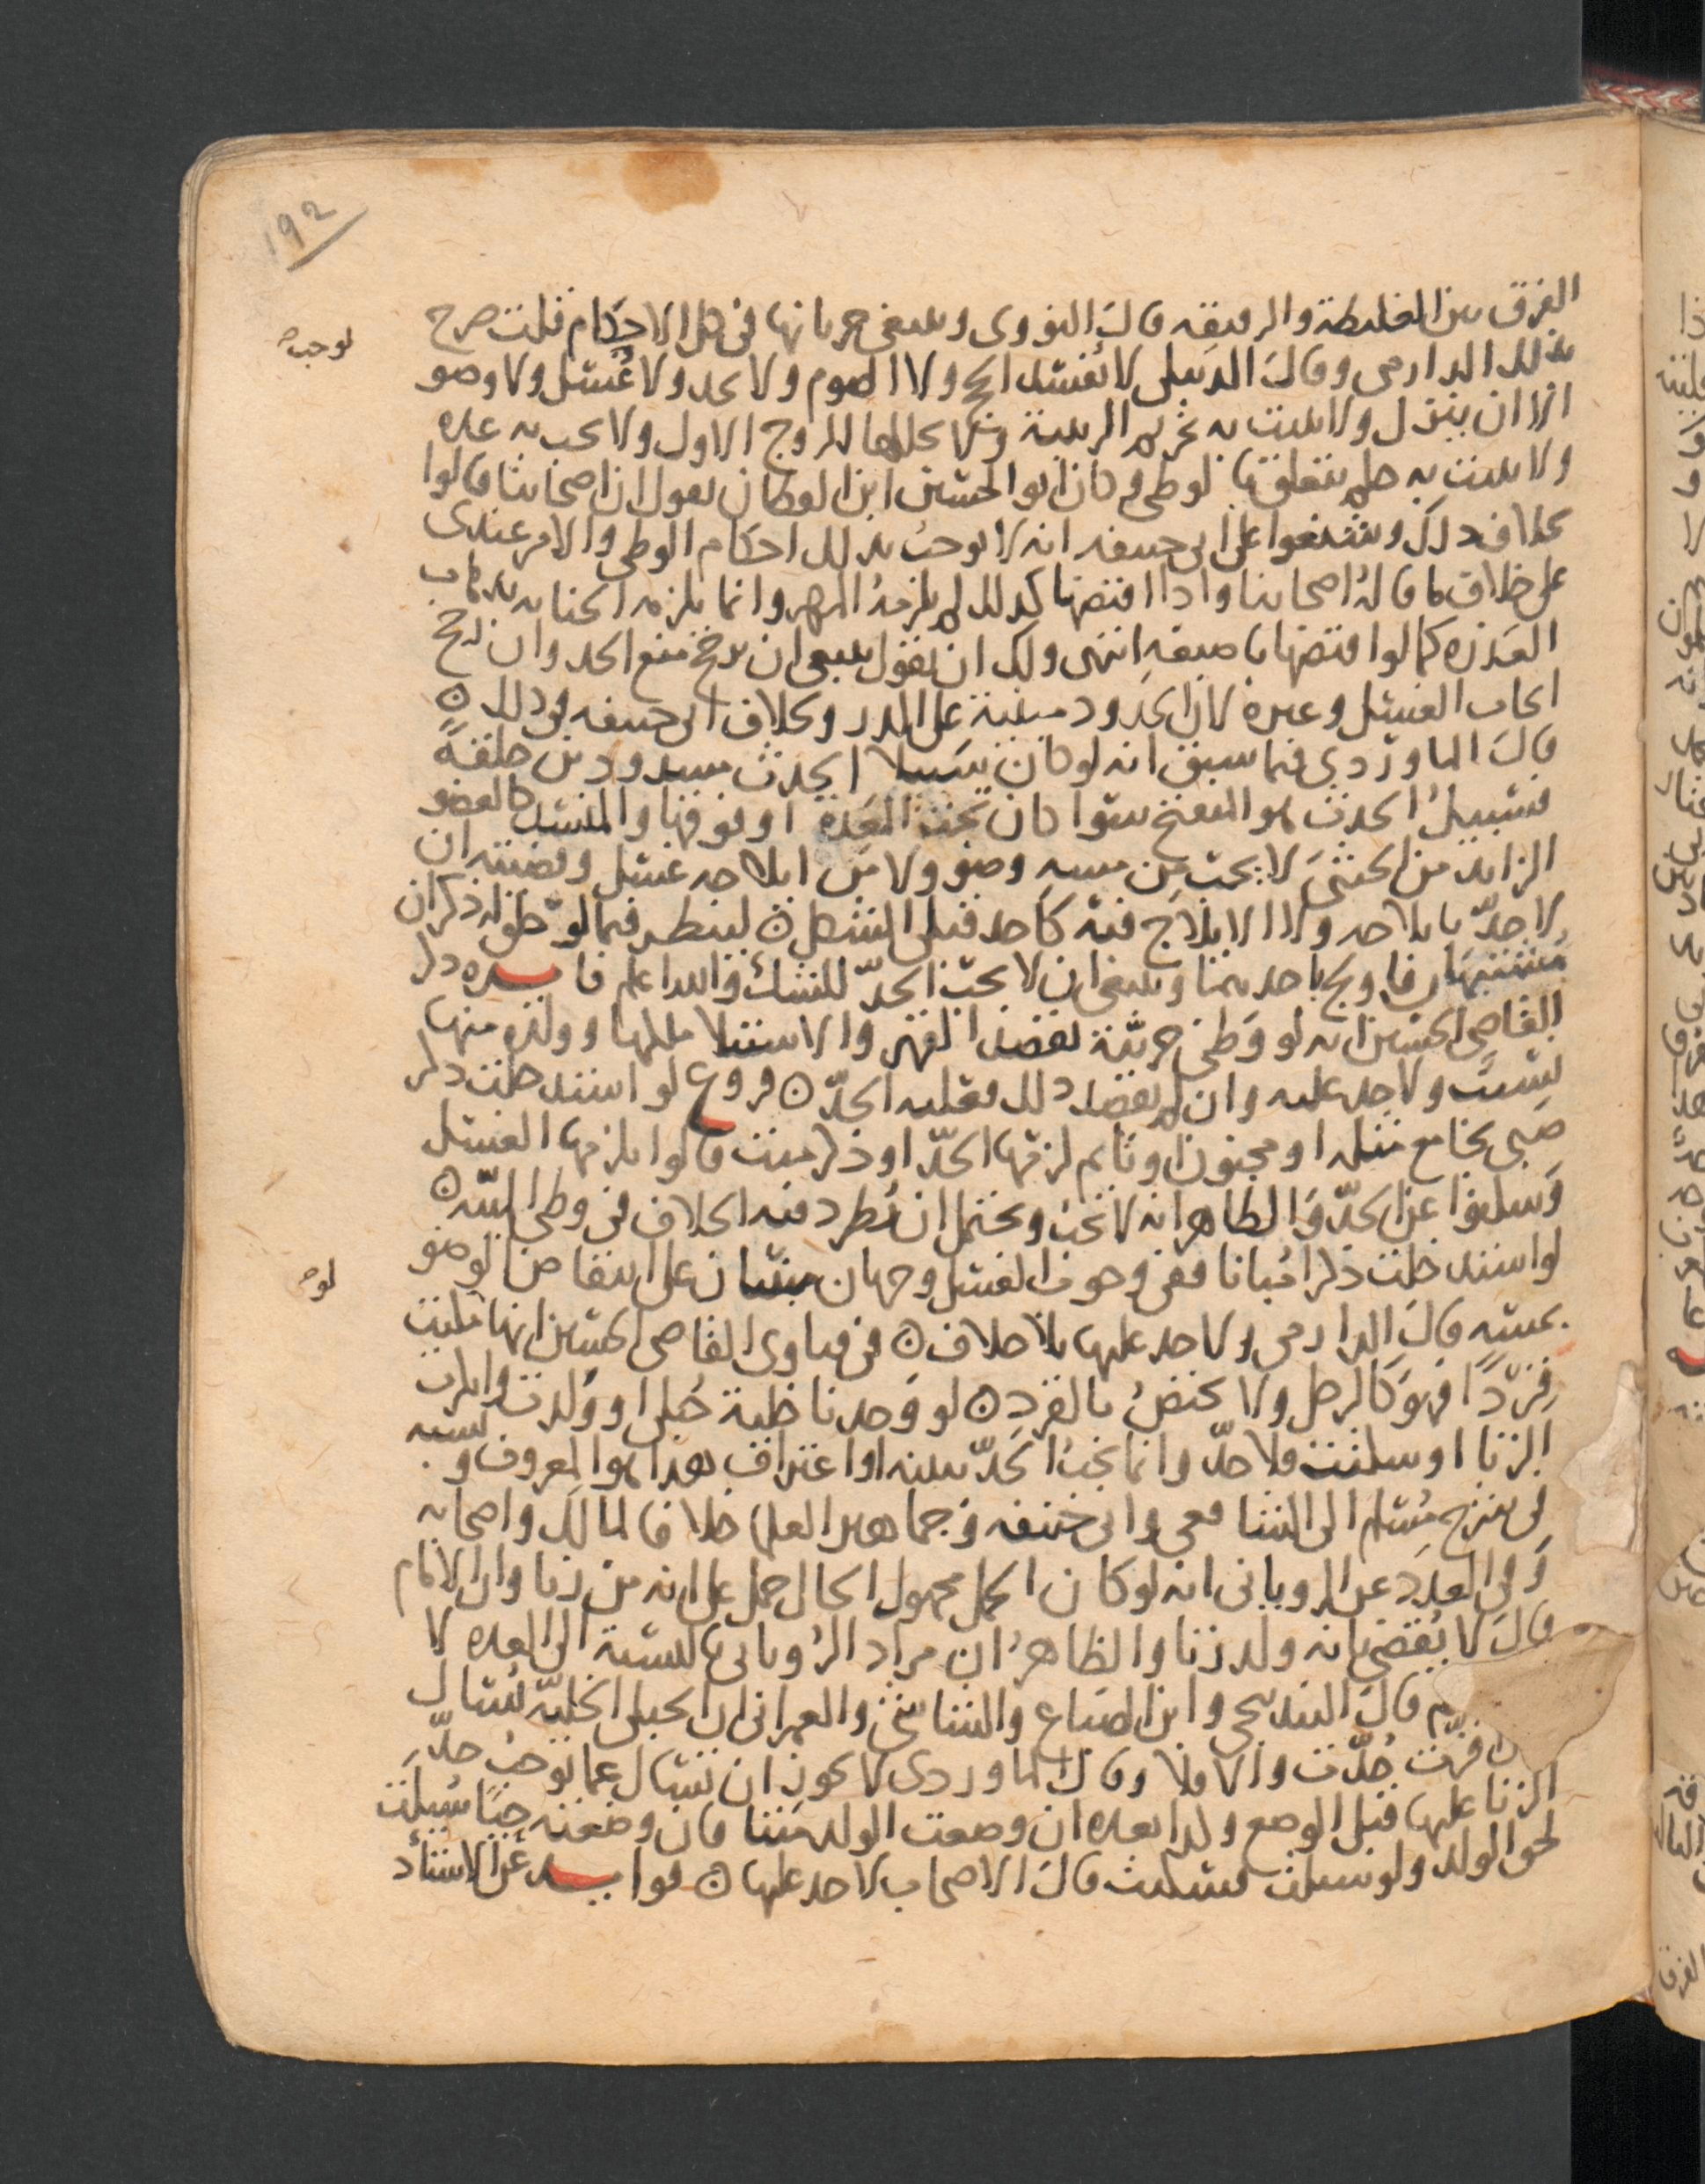 192
الفرق بين الغليظة والرقيقه قال النووى وينبغى جريانها فى كل الاحكام قلت صرح
بذلك الدارمى وقال الدبيلى لا يفسد الحج ولا الصوم ولا يحد ولا غسل ولا وضو
الا ان ينزل ولا يثبت به تحريم الربيبة ولا يحللها للزوج الاول ولا يجب به عده
ولا يثبت به حكم يتعلق بالوطى وكان ابو الحسين ابن القطان يقول ان اصحابنا قالوا
بخلاف ذلك وشنعوا على ابى حنيفه انه لا يوجب بذلك احكام الوطى والامر عندى
على خلاف ما قاله اصحابنا واذا افتضها كذلك لم يلزمه المهر وانما يلزمه الجنايه بذهاب
العذره كما لو افتضها باصبعه انتهى ولك ان تقول ينبغى ان يرجح منع الحد وان رجح
ايجاب الغسل وغيره لان الحدود مبنية على الدرء وخلاف ابى حنيفه فى ذلك
قال الماوردي فيما سبق انه لو كان سبيلا الحدث مسدودين خلقةً
فسبيل الحدث هو المنفتح سوا كان تحت المعدة او فوقها والمنسد كالعضو
الزايد من الخنثى لا يجب من مسه وضو ولا من ايلاجه غسل وقضيته ان
لا حدّ بايلاجه ولا الايلاج فيه كاحد قبلى المشكل لينظر فيما لو خلق له ذكران
مشتبهان فاولج باحدهما وينبغى ان لا يجب الحدّ للشك والله اعلم فايـــده ذكر
القاضى الحسين انه لو وطى حربيّة بقصد القهر والاستيلا ملكها وولده منها
نسيب ولا حد عليه وان لم يقصد ذلك فعليه الحدّ فروع لو استدخلت ذكر
صبى يجامع مثله او مجنون او نايم لزمها الحدّ او ذكر ميت قالوا يلزمها الغسل
وسكتوا عن الحدّ والظاهر انه لا يجب ويحتمل ان يُطرد فيه الخلاف فى وطى الميّته
لو استدخلت ذكرا مُبانا ففى وجوب الغسل وجهان مبنيان على انتقاض الوضو
بمسه قال الدارمى ولا حد عليها بلا خلاف فى فتاوى القاضى الحسين انها مكنت
قردًا فهو كالرجل ولا يختص بالقرد لو وجدنا خلية حُبلى او ولدت وانكرت
الزنا او سكتت فلا حدّ وانما يجب الحَدّ ببينه او اعتراف هذا هو المعروف ونسبه
فى شرح مُسلم الى الشافعى وابى حنيفه وجماهير العلما خلافا لمالك واصحابه
وفى العدد عن الرويانى انه لو كان الحمل مجهول الحال حمل على انه من زنا وان الامام
قال لا يُقضى بانه ولد زنا والظاهر ان مراد الرويانى بالنسبة الى العده لا
قال البندنيجى وابن الصباغ والشاشى والعمرانى ان الحبلى الخليّه تُسال
فان اقرّت حُدّت والا فلا وقال الماوردى لا يجوز ان تُسال عما يوجب حدّ
الزنا عليها قبل الوضع ولدا بعده ان وضعت الولد ميتا فان وضعته حيًّا سُيلت
لحق الولد ولو سيلت فسكتت قال الاصحاب لا حد عليها فوايـــد عن الاستاد